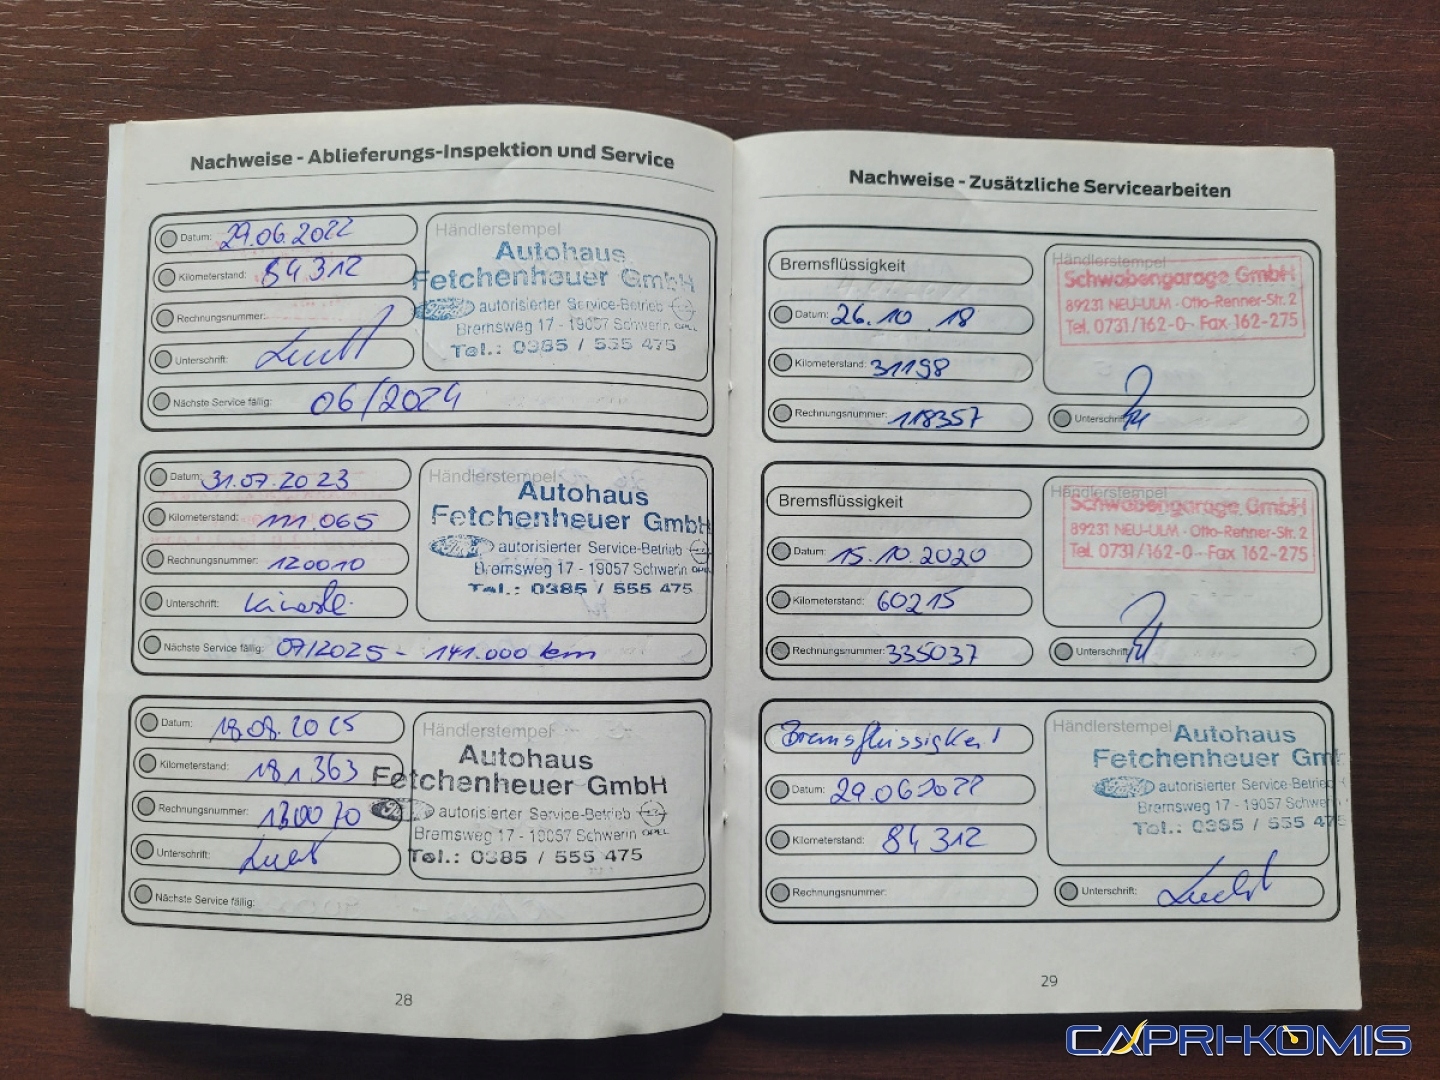 Nachweise - Ablieferungs-Inspektion und Service
Datum: 29.06.2022
Kilometerstand: 84312
Rechnungsnummer:
Unterschrift:
Nächste Service fällig: 06/2024
Händlerstempel
Autohaus
Fetchenheuer GmbH
Ford autorisierter Service-Betrieb
Bremsweg 17 - 19057 Schwerin OPEL
Tel.: 0385 / 555 475
Datum: 31.07.2023
Kilometerstand: 111.065
Rechnungsnummer: 120010
Unterschrift:
Nächste Service fällig: 07/2025 - 141.000 km
Händlerstempel
Autohaus
Fetchenheuer GmbH
Ford autorisierter Service-Betrieb
Bremsweg 17 - 19057 Schwerin OPEL
Tel.: 0385 / 555 475
Datum:
Kilometerstand: 181363
Rechnungsnummer:
Unterschrift:
Nächste Service fällig:
Händlerstempel
Autohaus
Fetchenheuer GmbH
Ford autorisierter Service-Betrieb
Bremsweg 17 - 19057 Schwerin OPEL
Tel.: 0385 / 555 475
28
Nachweise - Zusätzliche Servicearbeiten
Bremsflüssigkeit
Datum: 26.10.18
Kilometerstand: 31198
Rechnungsnummer: 118357
Händlerstempel
Schwabengarage GmbH
89231 NEU-ULM - Otto-Renner-Str. 2
Tel. 0731/162-0 - Fax 162-275
Unterschrift:
Bremsflüssigkeit
Datum: 15.10.2020
Kilometerstand: 60215
Rechnungsnummer: 335037
Händlerstempel
Schwabengarage GmbH
89231 NEU-ULM - Otto-Renner-Str. 2
Tel. 0731/162-0 - Fax 162-275
Unterschrift:
Bremsflüssigkeit
Datum: 29.06.2022
Kilometerstand: 84312
Rechnungsnummer:
Händlerstempel
Autohaus
Fetchenheuer GmbH
autorisierter Service-Betrieb
Bremsweg 17 - 19057 Schwerin
Tel.: 0385 / 555 475
Unterschrift:
29
CAPRI-KOMIS